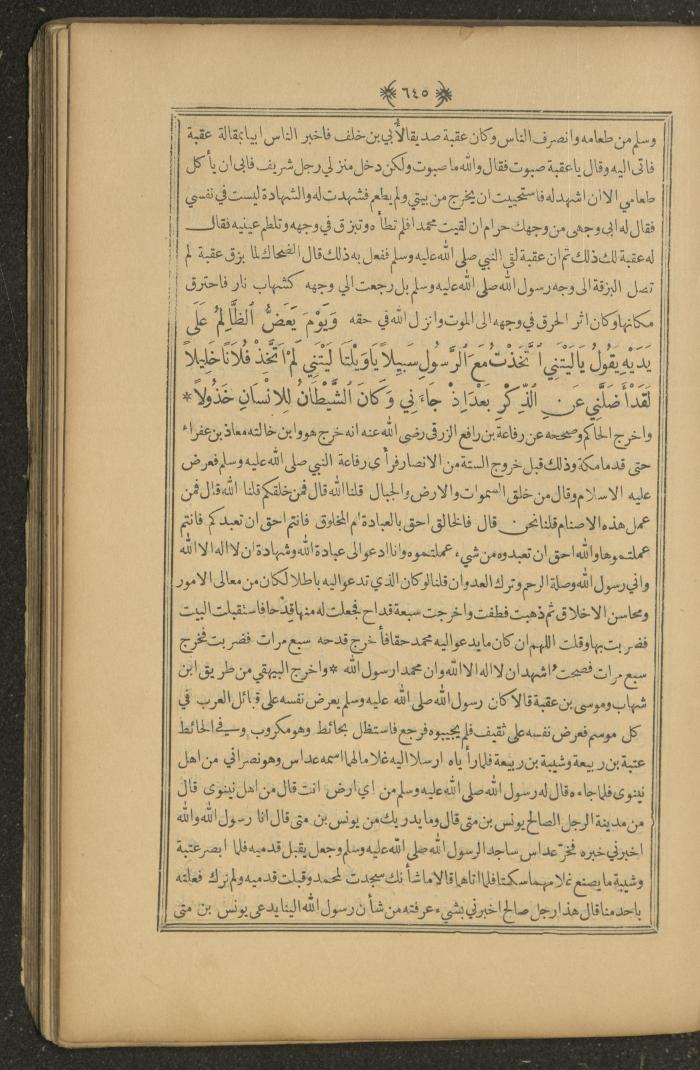 ٦٤٥
وسلم من طعامه وانصرف الناس وكان عقبة صديقا لأبي بن خلف فاخبر الناس ابيا بمقالة عقبة
فاتى اليه وقال يا عقبة صبوت فقال والله ما صبوت ولكن دخل منزلي رجل شريف فابى ان يأكل
طعامي الا ان اشهد له فاستحييت ان يخرج من بيتي ولم يطعم فشهدت له والشهادة ليست في نفسي
فقال له ابى وجهى من وجهك حرام ان لقيت محمدا فلم تطأه وتبزق في وجهه وتلطم عينيه فقال
له عقبة لك ذلك ثم ان عقبة لقى النبي صلى الله عليه وسلم ففعل به ذلك قال الضحاك لما بزق عقبة لم
تصل البزقة الى وجه رسول الله صلى الله عليه وسلم بل رجعت الي وجهه كشهاب نار فاحترق
مكانها وكان اثر الحرق في وجهه الى الموت وانزل الله في حقه وَيَوْمَ يَعَضُّ ٱلظَّالِمُ عَلَى
يَدَيْهِ يَقُولُ يَالَيْتَنِي ٱتَّخَذْتُ مَعَ ٱلرَّسُولِ سَبِيلاً يَاوَيْلَتَا لَيْتَنِي لَمْ اَتَّخِذْ فُلَانًا خَلِيلاً
لَقَدْ أَضَلَّنِي عَنِ ٱلذِّكْرِ بَعْدَ اِذْ جَاءَنِي وَكَانَ ٱلشَّيْطَانُ لِلاِنْسَانِ خَذُولاً *
واخرج الحاكم وصححه عن رفاعة بن رافع الزرقى رضى الله عنه انه خرج هو وابن خالته معاذ بن عفراء
حتى قدما مكة وذلك قبل خروج الستة من الانصار فرأى رفاعة النبي صلى الله عليه وسلم فعرض
عليه الاسلام وقال من خلق السموات والارض والجبال قلنا الله قال فمن خلقكم قلنا الله قال فمن
عمل هذه الاصنام قلنا نحن قال فالخالق احق بالعبادة ام المخلوق فانتم احق ان تعبدكم فانتم
عملتموها والله احق ان تعبدوه من شيء عملتموه وانا ادعو الى عبادة الله وشهادة ان لا اله الا الله
واني رسول الله وصلة الرحم وترك العدوان قلنا لو كان الذي تدعو اليه باطلا لكان من معالى الامور
ومحاسن الاخلاق ثم ذهبت فطفت واخرجت سبعة قداح فجعلت له منها قِدْحا فاستقبلت البيت
فضربت بها وقلت اللهم ان كان ما يدعو اليه محمد حقا فأخرج قدحه سبع مرات فضربت فخرج
سبع مرات فصيحت اشهد ان لا اله الا الله وان محمد ارسول الله * واخرج البيهقي من طريق ابن
شهاب وموسى بن عقبة قالا كان رسول الله صلى الله عليه وسلم يعرض نفسه على قبائل العرب في
كل موسم فعرض نفسه على ثقيف فلم يجيبوه فرجع فاستظل بحائط وهو مكروب وفي الحائط
عتبة بن ربيعة وشيبة بن ربيعة فلما رأياه ارسلا اليه غلاما لهما اسمه عداس وهو نصراني من اهل
نينوى فلما جاءه قال له رسول الله صلى الله عليه وسلم من اي ارض انت قال من اهل نينوى قال
من مدينة الرجل الصالح يونس بن متى قال وما يدريك من يونس بن متى قال انا رسول الله والله
اخبرني خبره فخرّ عداس ساجدا لرسول الله صلى الله عليه وسلم وجعل يقبل قدميه فلما ابصر عتبة
وشيبة ما يصنع غلامهما سكتا فلما اتاهما قالا ما شأنك سجدت لمحمد وقبلت قدميه ولم نرك فعلته
باحد منا قال هذا رجل صالح اخبرني بشيء عرفته من شأن رسول الله الينا يدعى يونس بن متى